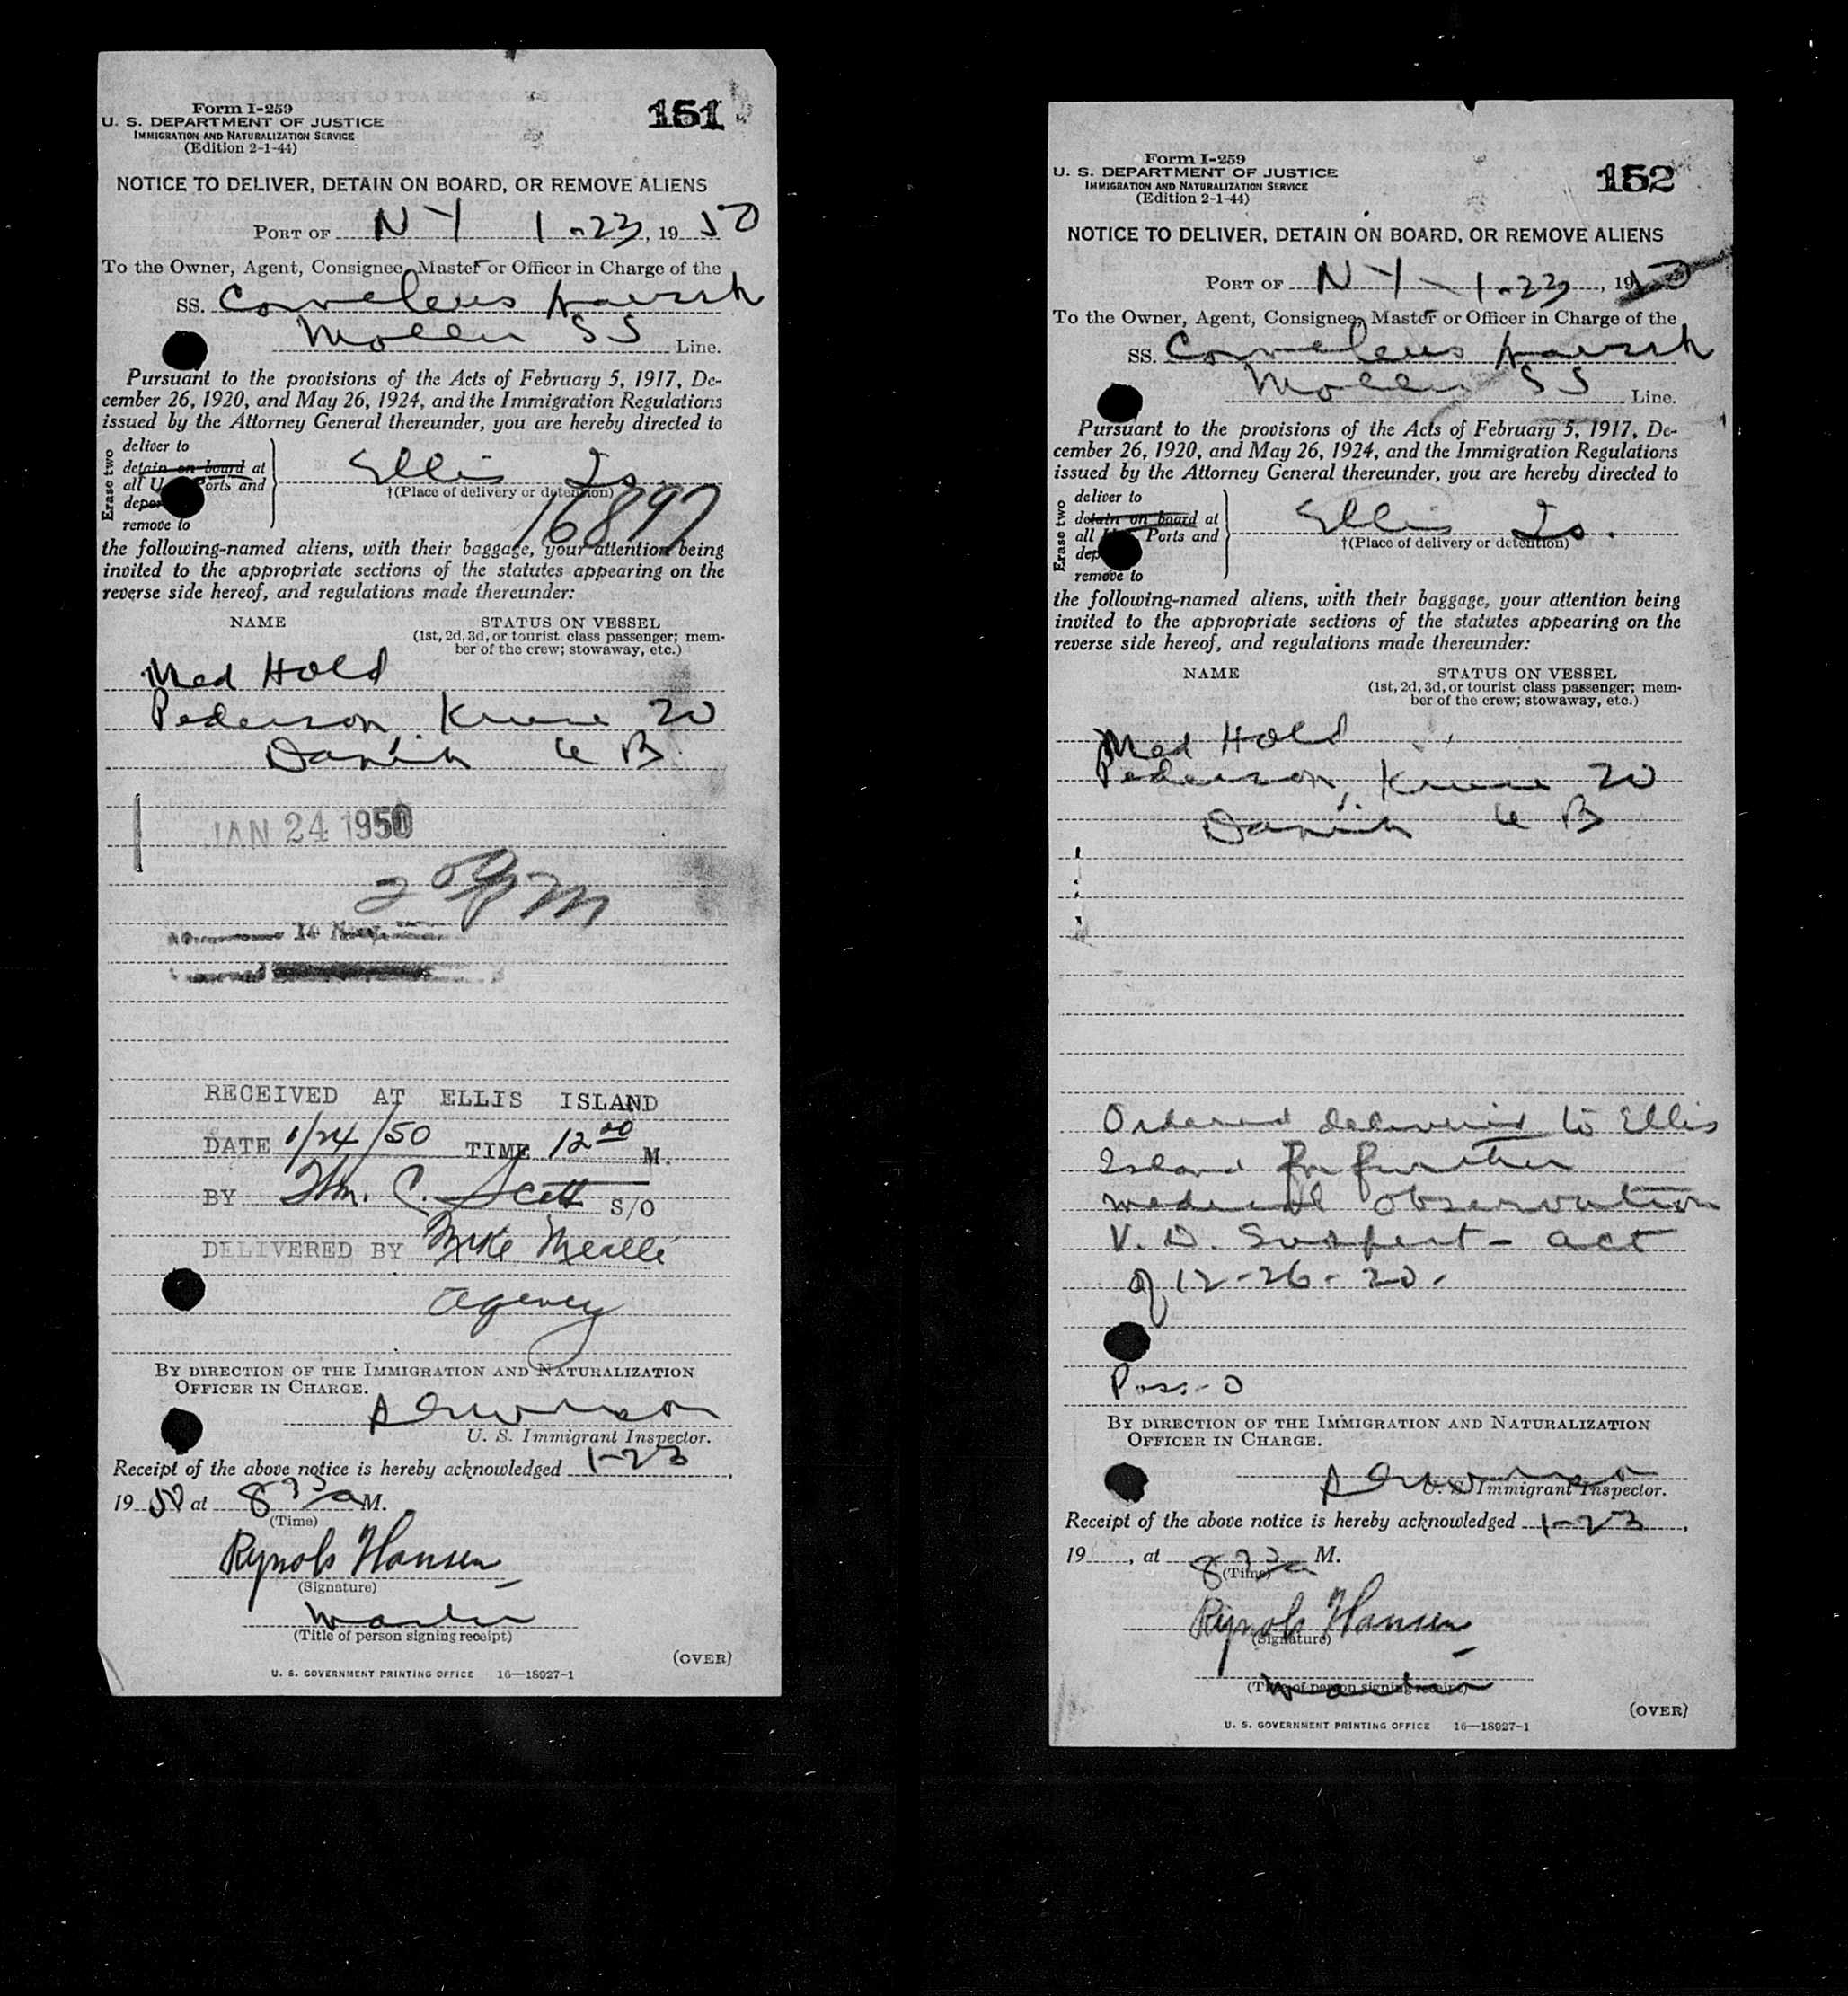 Form I-259
U. S. DEPARTMENT OF JUSTICE
IMMIGRATION AND NATURALIZATION SERVICE
(Edition 2-1-44)
151
NOTICE TO DELIVER, DETAIN ON BOARD, OR REMOVE ALIENS
PORT OF N Y 1-23, 1950
To the Owner, Agent, Consignee, Master or Officer in Charge of the
SS. Cornelius Maersk
Moller SS Line.
Pursuant to the provisions of the Acts of February 5, 1917, De-
cember 26, 1920, and May 26, 1924, and the Immigration Regulations
issued by the Attorney General thereunder, you are hereby directed to
Erase two
deliver to
detain on board at
all U. Ports and
remove to
Ellis Is.
†(Place of delivery or detention)
16897
the following-named aliens, with their baggage, your attention being
invited to the appropriate sections of the statutes appearing on the
reverse side hereof, and regulations made thereunder:
NAME STATUS ON VESSEL
(1st, 2d, 3d, or tourist class passenger; mem-
ber of the crew; stowaway, etc.)
Med Hold
Pederson, 20
Danish
JAN 24 1950
PM
RECEIVED AT ELLIS ISLAND
DATE 1/24/50 TIME 12 00 M.
BY Wm. C. Scott S/O
DELIVERED BY Mike
agency
BY DIRECTION OF THE IMMIGRATION AND NATURALIZATION
OFFICER IN CHARGE.
U. S. Immigrant Inspector.
Receipt of the above notice is hereby acknowledged 1-23,
1950 at 8 a M.
(Time)
Hansen
(Signature)
Master
(Title of person signing receipt)
(OVER)
U. S. GOVERNMENT PRINTING OFFICE 16—18927-1
Form I-259
U. S. DEPARTMENT OF JUSTICE
IMMIGRATION AND NATURALIZATION SERVICE
(Edition 2-1-44)
152
NOTICE TO DELIVER, DETAIN ON BOARD, OR REMOVE ALIENS
PORT OF N Y 1-23, 1950
To the Owner, Agent, Consignee, Master or Officer in Charge of the
SS. Cornelius Maersk
Moller SS Line.
Pursuant to the provisions of the Acts of February 5, 1917, De-
cember 26, 1920, and May 26, 1924, and the Immigration Regulations
issued by the Attorney General thereunder, you are hereby directed to
Erase two
deliver to
detain on board at
all Ports and
remove to
Ellis Is.
†(Place of delivery or detention)
the following-named aliens, with their baggage, your attention being
invited to the appropriate sections of the statutes appearing on the
reverse side hereof, and regulations made thereunder:
NAME STATUS ON VESSEL
(1st, 2d, 3d, or tourist class passenger; mem-
ber of the crew; stowaway, etc.)
Med Hold
Pederson, 20
Danish
Ordered delivered to Ellis
Island for further
medical observation
V. D. Suspect - act
of 12-26-20.
BY DIRECTION OF THE IMMIGRATION AND NATURALIZATION
OFFICER IN CHARGE.
U. S. Immigrant Inspector.
Receipt of the above notice is hereby acknowledged 1-23,
19, at 8 a M.
(Time)
Hansen
(Signature)
Master
(Title of person signing receipt)
(OVER)
U. S. GOVERNMENT PRINTING OFFICE 16—18927-1